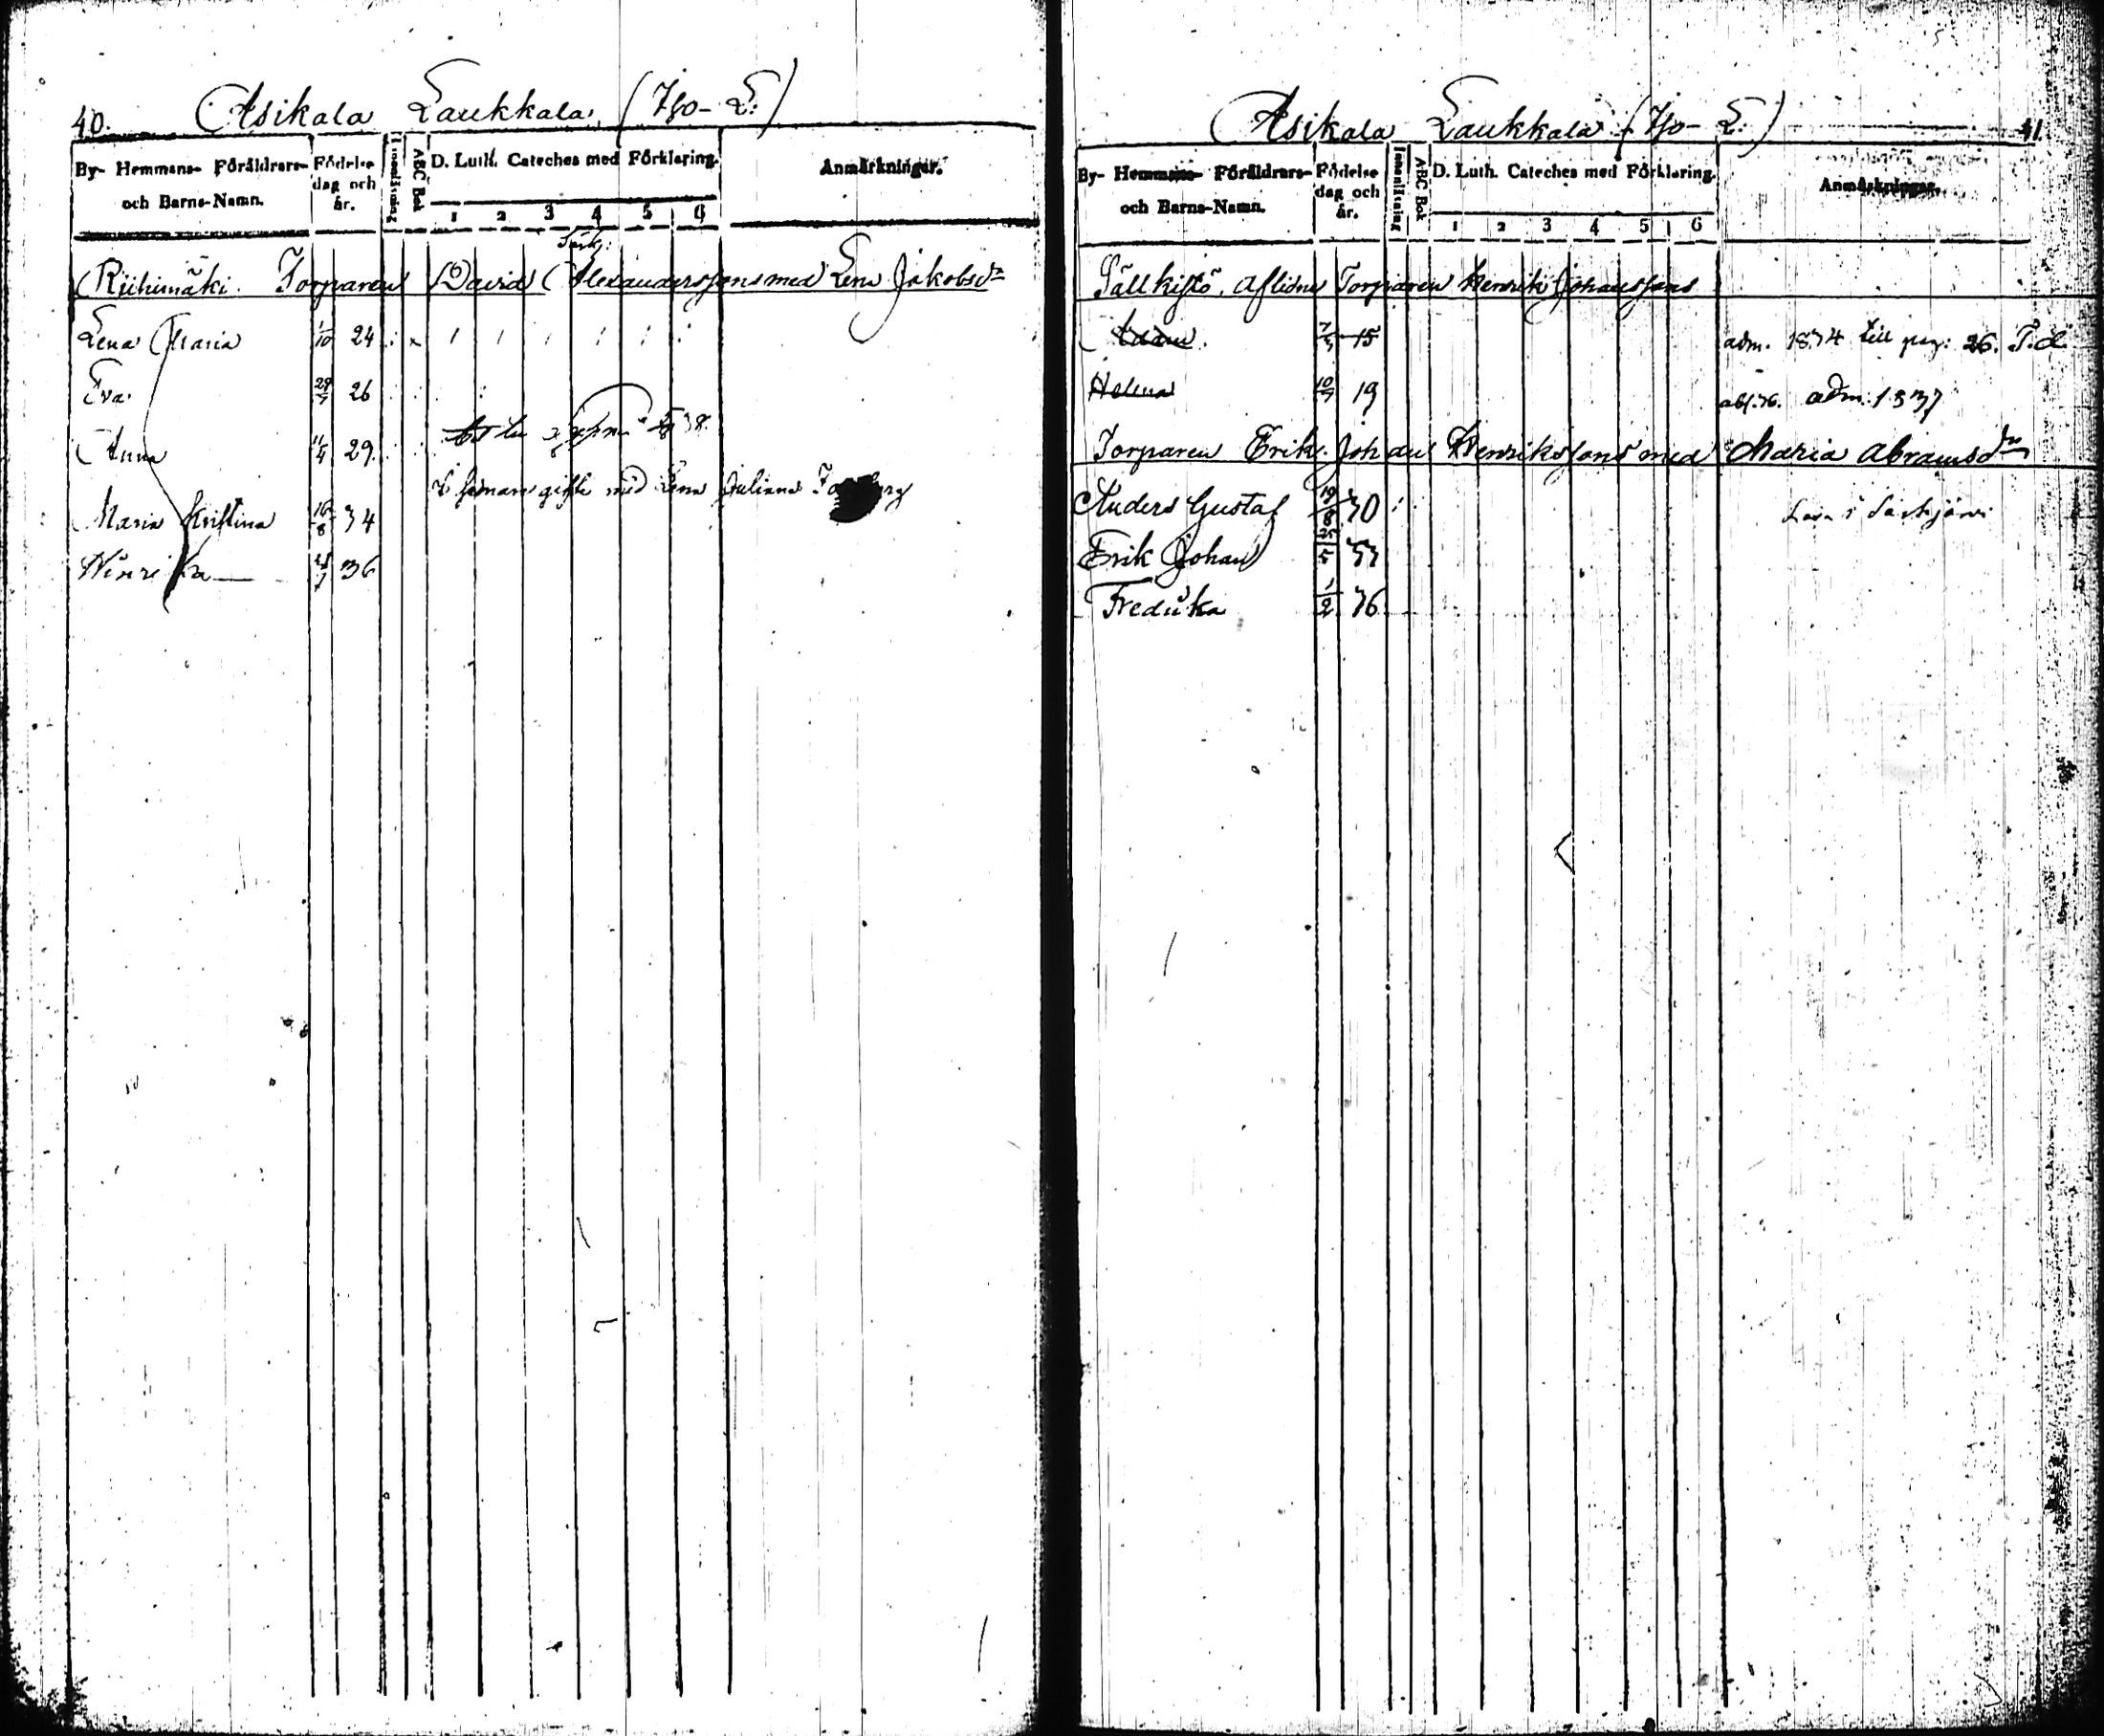 40. Asikala Laukkala
By- Hemmans- Föräldrars- och Barns-Namn. Födelse dag och år. Innanläsning ABC Bok D. Luth. Cateches med Förklaring. Anmärkningar.
1 2 3 4 5 6
Riihimäki. Torparen David Alexanderssons med Lena Jakobsdr
Lena Maria 1/10 24
Eva 26
Anna 11/4 29
38.
gifte med Lena Juliana
Maria Kristina 16/8 34
36
Asikala Laukkala 41.
By- Hemmans- Föräldrars- och Barns-Namn. Födelse dag och år. Innanläsning ABC Bok D. Luth. Cateches med Förklaring. Anmärkningar.
1 2 3 4 5 6
Sällkistö. Aflidne Torparen Henrik Johanssons
Adam. 15 adm. 1834 till pag: 26.
Helena 19 adm. 1837
Torparen Erik Johan Henrikssons med Maria Abramsdr
Anders Gustaf 19/8 30
Erik Johan 25/5 33
Fredrika 1/2 36